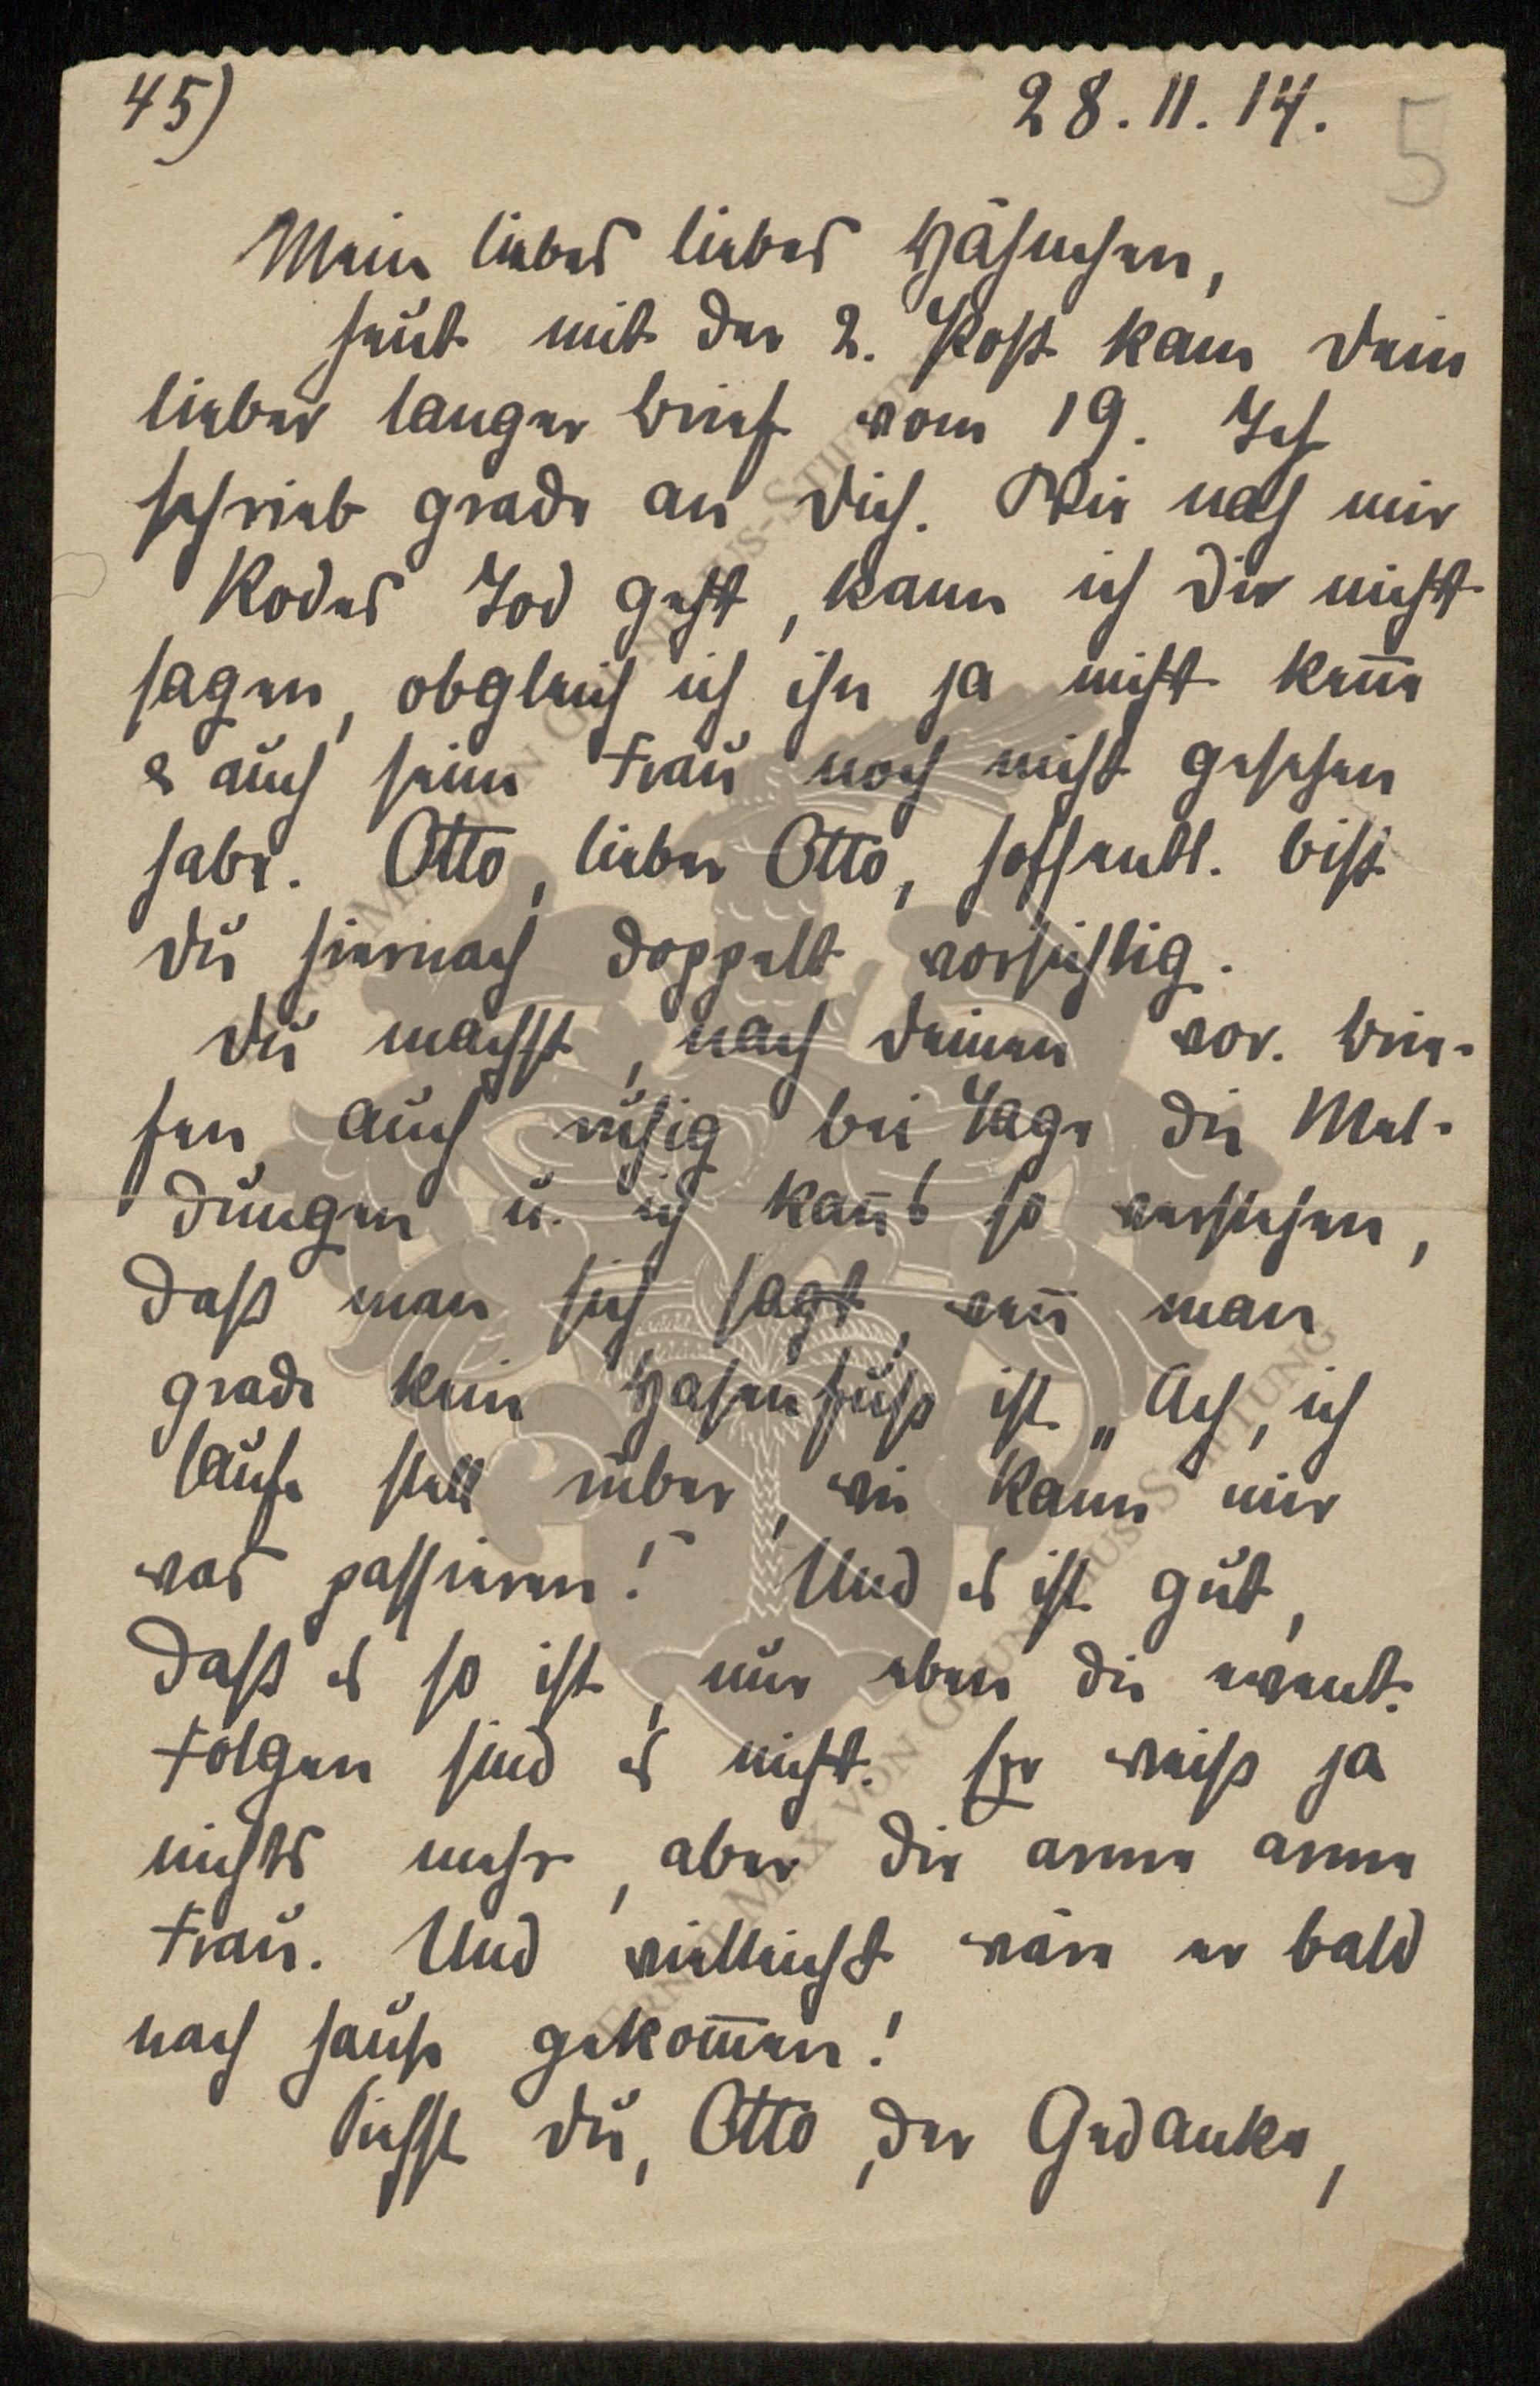 45)
28.11.14.
5
Mein liebes liebes Häschen,
heut mit der 2. Post kam Dein
lieber langer Brief vom 19. Ich
schrieb grade an Dich. Wie nah mir
Rodes Tod geht, kann ich Dir nicht
sagen, obgleich ich ihn ja nicht kenne
& auch seine Frau noch nicht gesehen
habe. Otto, lieber Otto, hoffentl. bist
Du hiernach doppelt vorsichtig.
Du machst, nach Deinen vor. Brie-
fen auch ruhig bei Tage die Mel-
dungen u. ich kann's so verstehen,
daß man sich sagt, wenn man
grade kein Hasenfuß ist „Ach, ich
laufe schnell rüber, wie kann mir
was passieren!" Und es ist gut,
daß es so ist, nur eben die event.
Folgen sind es nicht. Er weiß ja
nichts mehr, aber die arme arme
Frau. Und vielleicht wäre er bald
nach Hause gekommen!
Siehst Du, Otto, der Gedanke,
ERNST MAX VON GRUNELIUS-STIFTUNG
ERNST MAX VON GRUNELIUS-STIFTUNG